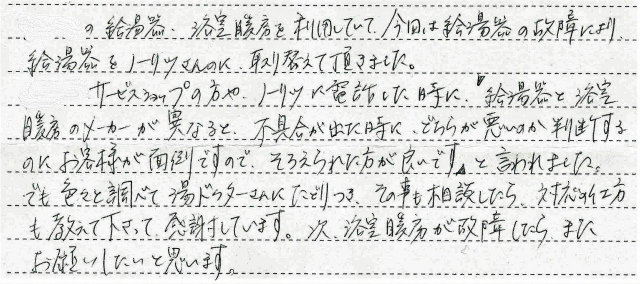 の給湯器、浴室暖房を利用していて、今回は給湯器の故障により、
給湯器をノーリツさんのに、取り替えて頂きました。
サービスショップの方や、ノーリツに電話した時に、『給湯器と浴室
暖房のメーカーが異なると、不具合が出た時に、どちらが悪いのか判断する
のにお客様が面倒ですので、そろえられた方が良いです』と言われました。
でも色々と調べて湯ドクターさんにたどりつき、その事も相談したら、対応の仕方
も教えて下さって、感謝しています。次、浴室暖房が故障したら、また
お願いしたいと思います。